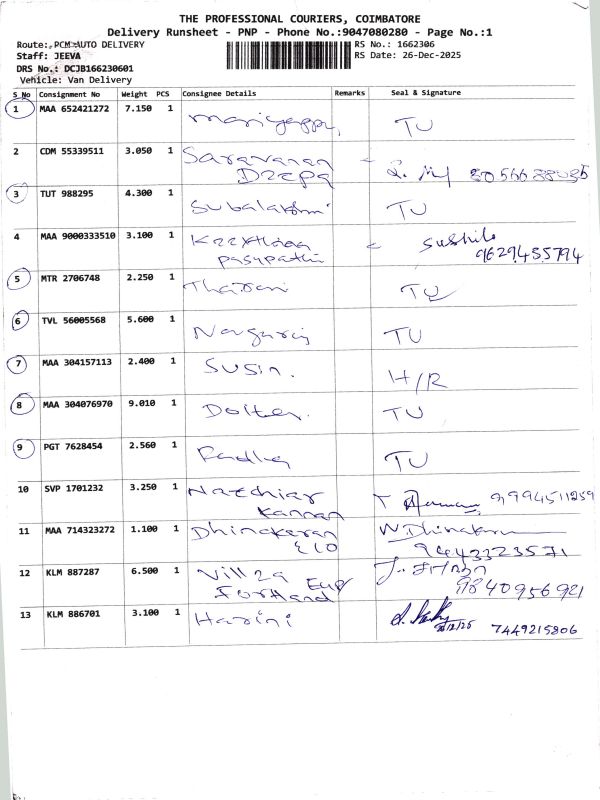 THE PROFESSIONAL COURIERS, COIMBATORE
Delivery Runsheet - PNP - Phone No.:9047080280 - Page No.:1
Route: PCM-AUTO DELIVERY
RS No.: 1662306
Staff: JEEVA
RS Date: 26-Dec-2025
DRS No.: DCJB166230601
Vehicle: Van Delivery
S No Consignment No Weight PCS Consignee Details Remarks Seal & Signature
1 MAA 652421272 7.150 1 Mariyappa TU
2 CDM 55339511 3.050 1 Saravanan
Deepa
3 TUT 988295 4.300 1 Subalakshmi TU
4 MAA 9000333510 3.100 1 Sushila
pasupathi 9629455794
5 MTR 2706748 2.250 1 Tharani TU
6 TVL 56005568 5.600 1 Nagaraj TU
7 MAA 304157113 2.400 1 Susin. H/R
8 MAA 304076970 9.010 1 TU
9 PGT 7628454 2.560 1 TU
10 SVP 1701232 3.250 1 Natchiar
Kannan 9994511259
11 MAA 714323272 1.100 1 Dhinakaran
E10 9443323571
12 KLM 887287 6.500 1 9840956921
13 KLM 886701 3.100 1 Harini 7449215806